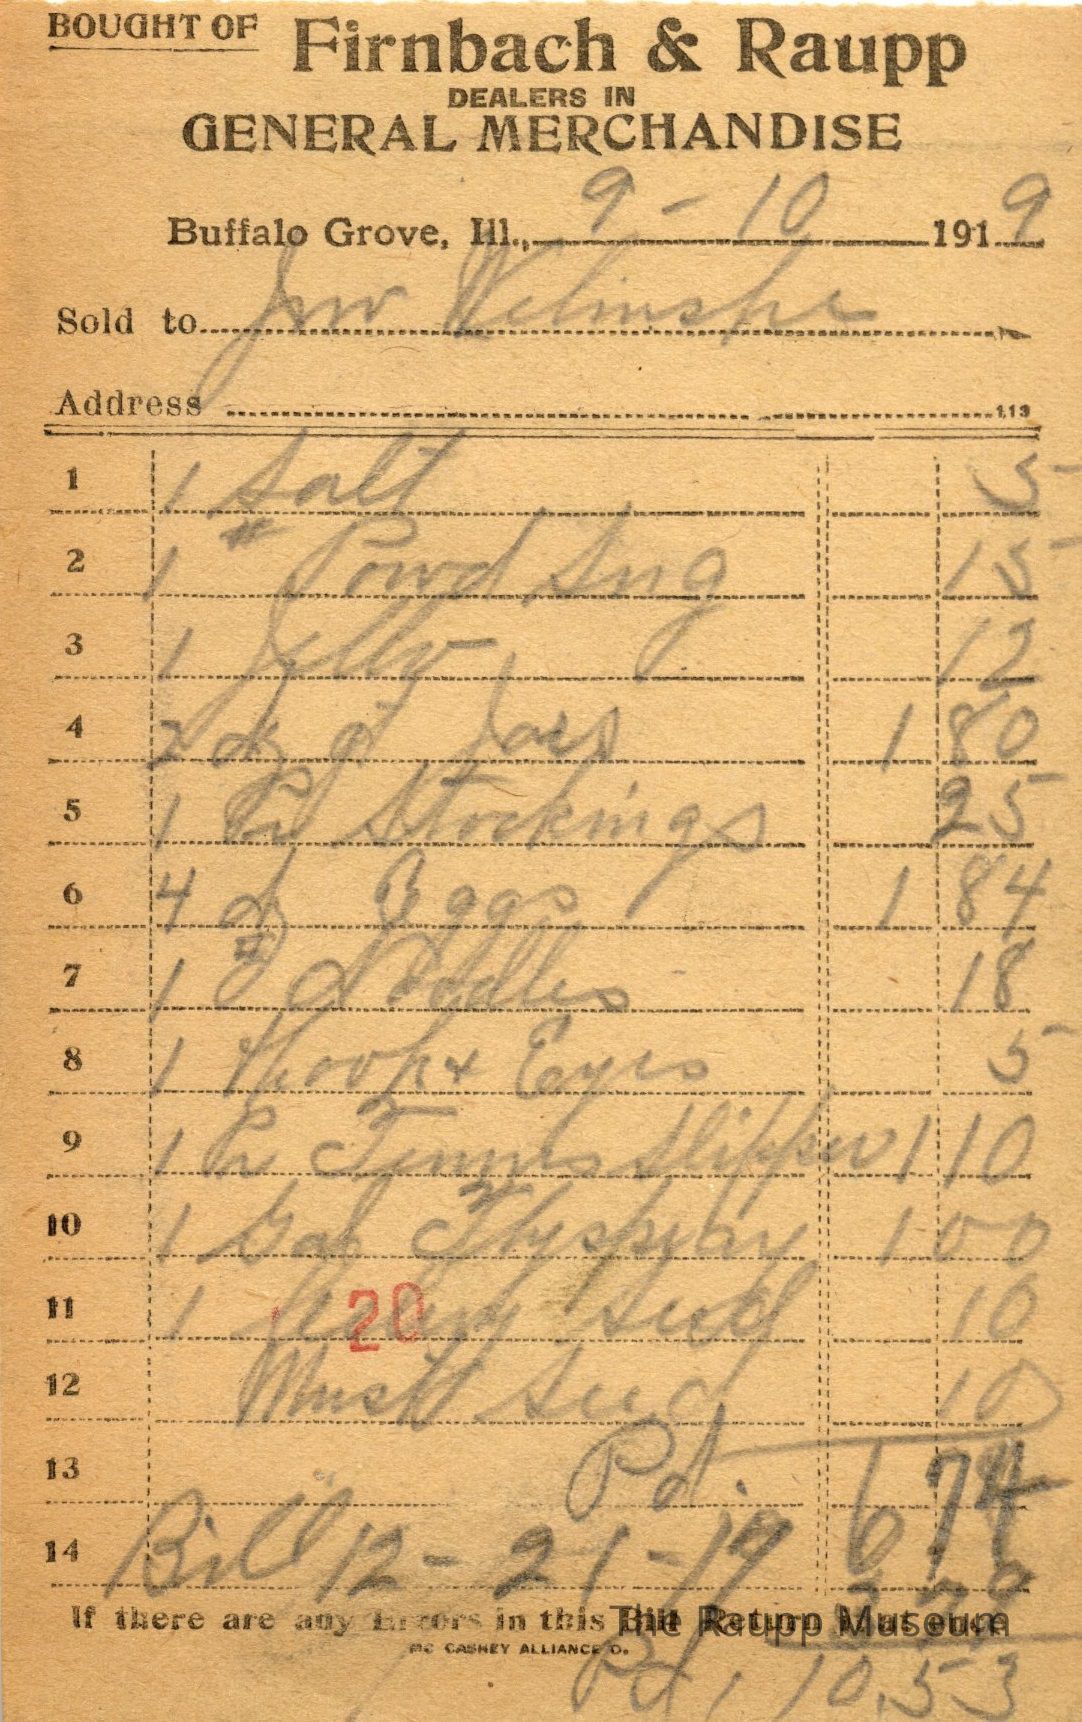 BOUGHT OF Firnbach & Raupp
DEALERS IN
GENERAL MERCHANDISE
Buffalo Grove, Ill., 9-10 1919
Sold to
Address 113
1 1 Salt 5
2 1 # Powd Sug 15
3 1 Jelly 12
4 2 dz qt Jars 1 80
5 1 Pr Stockings 25
6 4 d Eggs 1 84
7 1 # Noodles 18
8 1 Hook & Eyes 5
9 1 Pr Tennis Slipper 1 10
10 1 Gal Flyspray 1 00
11 1 20 Seed 10
12 Must Seed 10
13 Pd. 6 74
14 Bill 12-21-19 6 74
If there are any Errors in this Bill Return at once
The Raupp Museum
MC CASKEY ALLIANCE O.
Pd, 10.53